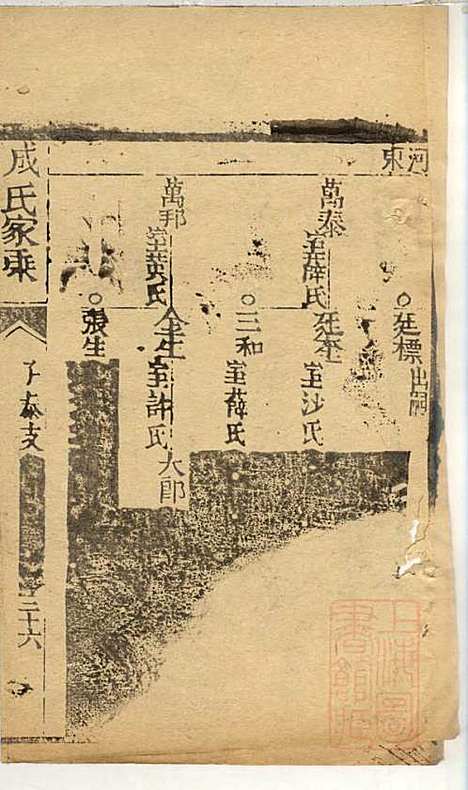 河東
廷標 出嗣
萬泰 室薛氏
廷奎 室沙氏
三和 室薛氏
萬邦 室黄氏
全生 室許氏
大郎
張生
成氏家乘
子泰支
二十六
上海圖書館藏